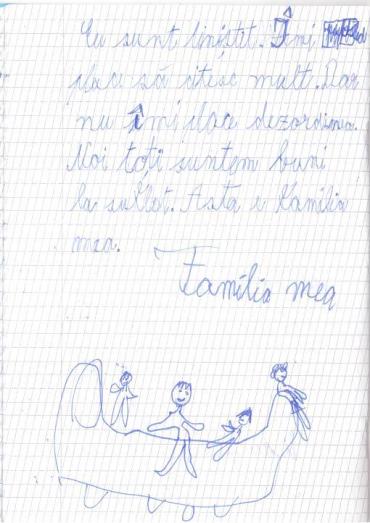 Eu sunt liniștit. Îmi
place să citesc mult. Dar
nu îmi plac dezordinea.
Noi toți suntem buni
la suflet. Asta e familia
mea.
Familia mea